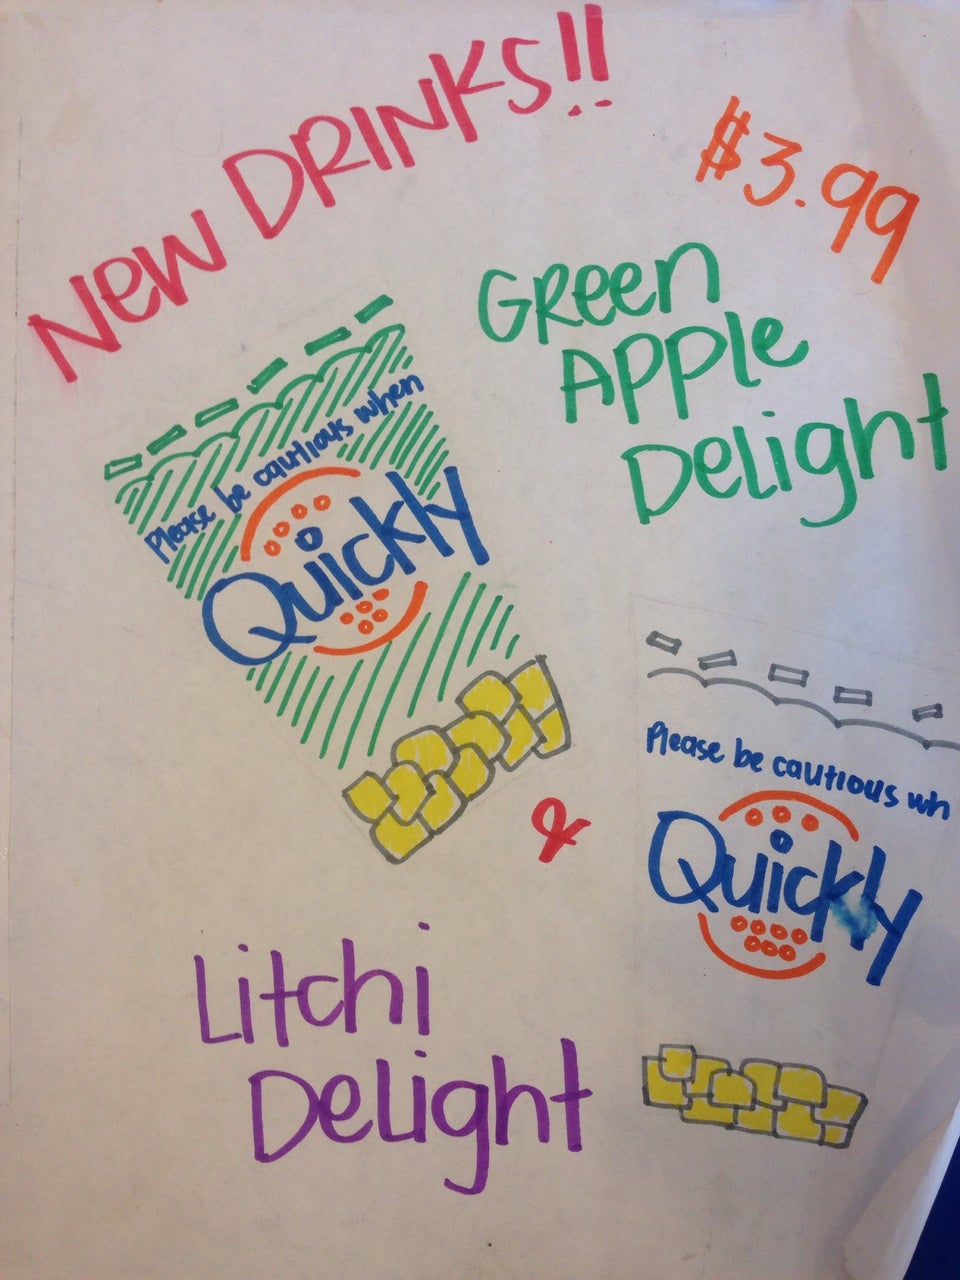 New DRINKS!!
$3.99
Green
Apple
Delight
Please be cautious when
Quickly
&
Please be cautious wh
Quickly
Litchi
Delight